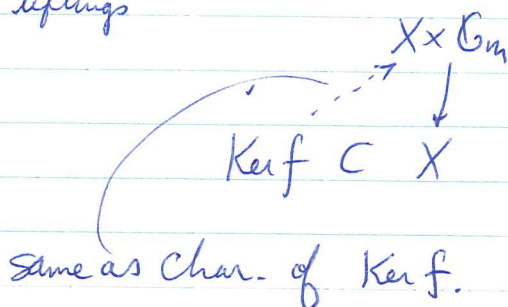 liftings
X × 𝔾m
Ker f ⊂ X
same as Char. of Ker f.